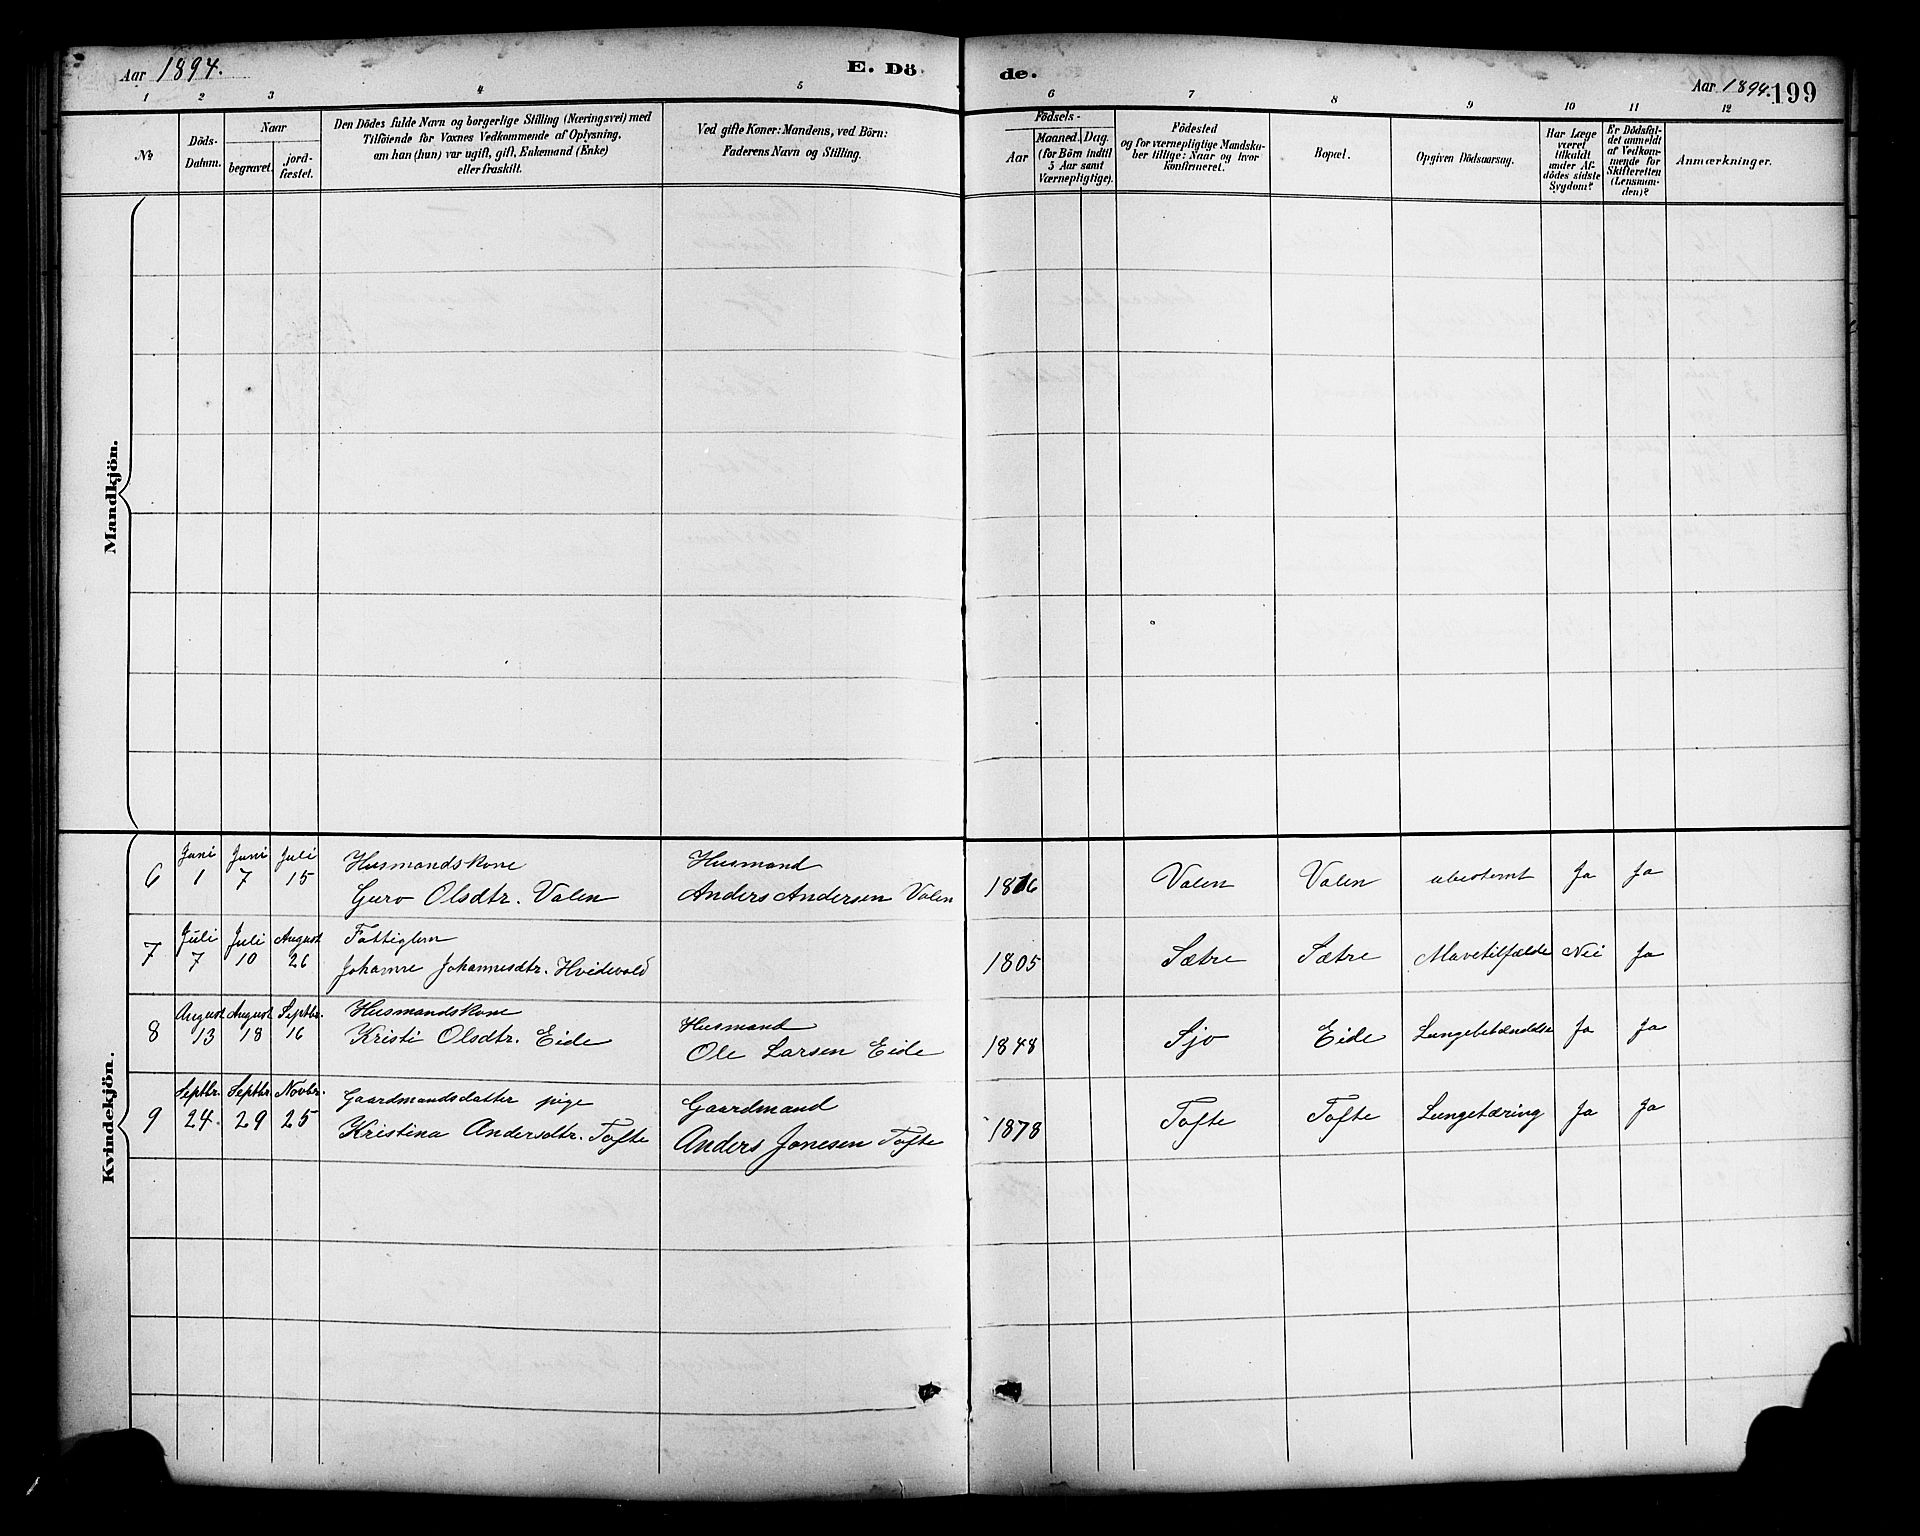 Aar 1894.
E. Döde.
Aar 1894.
199
1 2 3 4 5 6 7 8 9 10 11 12
№
Döds-Datum.
Naar
begravet.
jord-fæstet.
Den Dödes fulde Navn og borgerlige Stilling (Næringsvei) med
Tilföiende for Voxnes Vedkommende af Oplysning,
om han (hun) var ugift, gift, Enkemand (Enke)
eller fraskilt.
Ved gifte Koner: Mandens, ved Börn:
Faderens Navn og Stilling.
Födsels-
Aar
Maaned. Dag.
(for Börn indtil
5 Aar samt
Værnepligtige).
Födested
og for værnepligtige Mandska-
ber tillige: Naar og hvor
konfirmeret.
Bopæl.
Opgiven Dödsaarsag.
Har Læge
været
tilkaldt
under Af-
dödes sidste
Sygdom?
Er Dödsfal-
det anmeldt
af Vedkom-
mende for
Skifteretten
(Lensman-
den)?
Anmærkninger.
Mandkjön.
Kvindekjön.
6 Juni 1 Juni 7 Juli 15 Husmandskone Guro Olsdtr. Valen Husmand Anders Andersen Valen Valen Valen ubestemt Ja Ja
7 Juli 7 Juli 10 August 26 Fattiglem Johanne Johannesdtr. Hvidevold 1805 Sætre Sætre Mavetilfælde Nei Ja
8 August 13 August 18 Septbr. 16 Husmandskone Kristi Olsdtr. Eide Husmand Ole Larsen Eide 1848 Sjo Eide Lungebetændelse Ja Ja
9 Septbr. 24. Septbr. 29 Novbr. 25 Gaardmandsdatter pige Kristina Andersdtr. Tofte Gaardmand Anders Jonesen Tofte 1878 Tofte Tofte Lungetæring Ja Ja